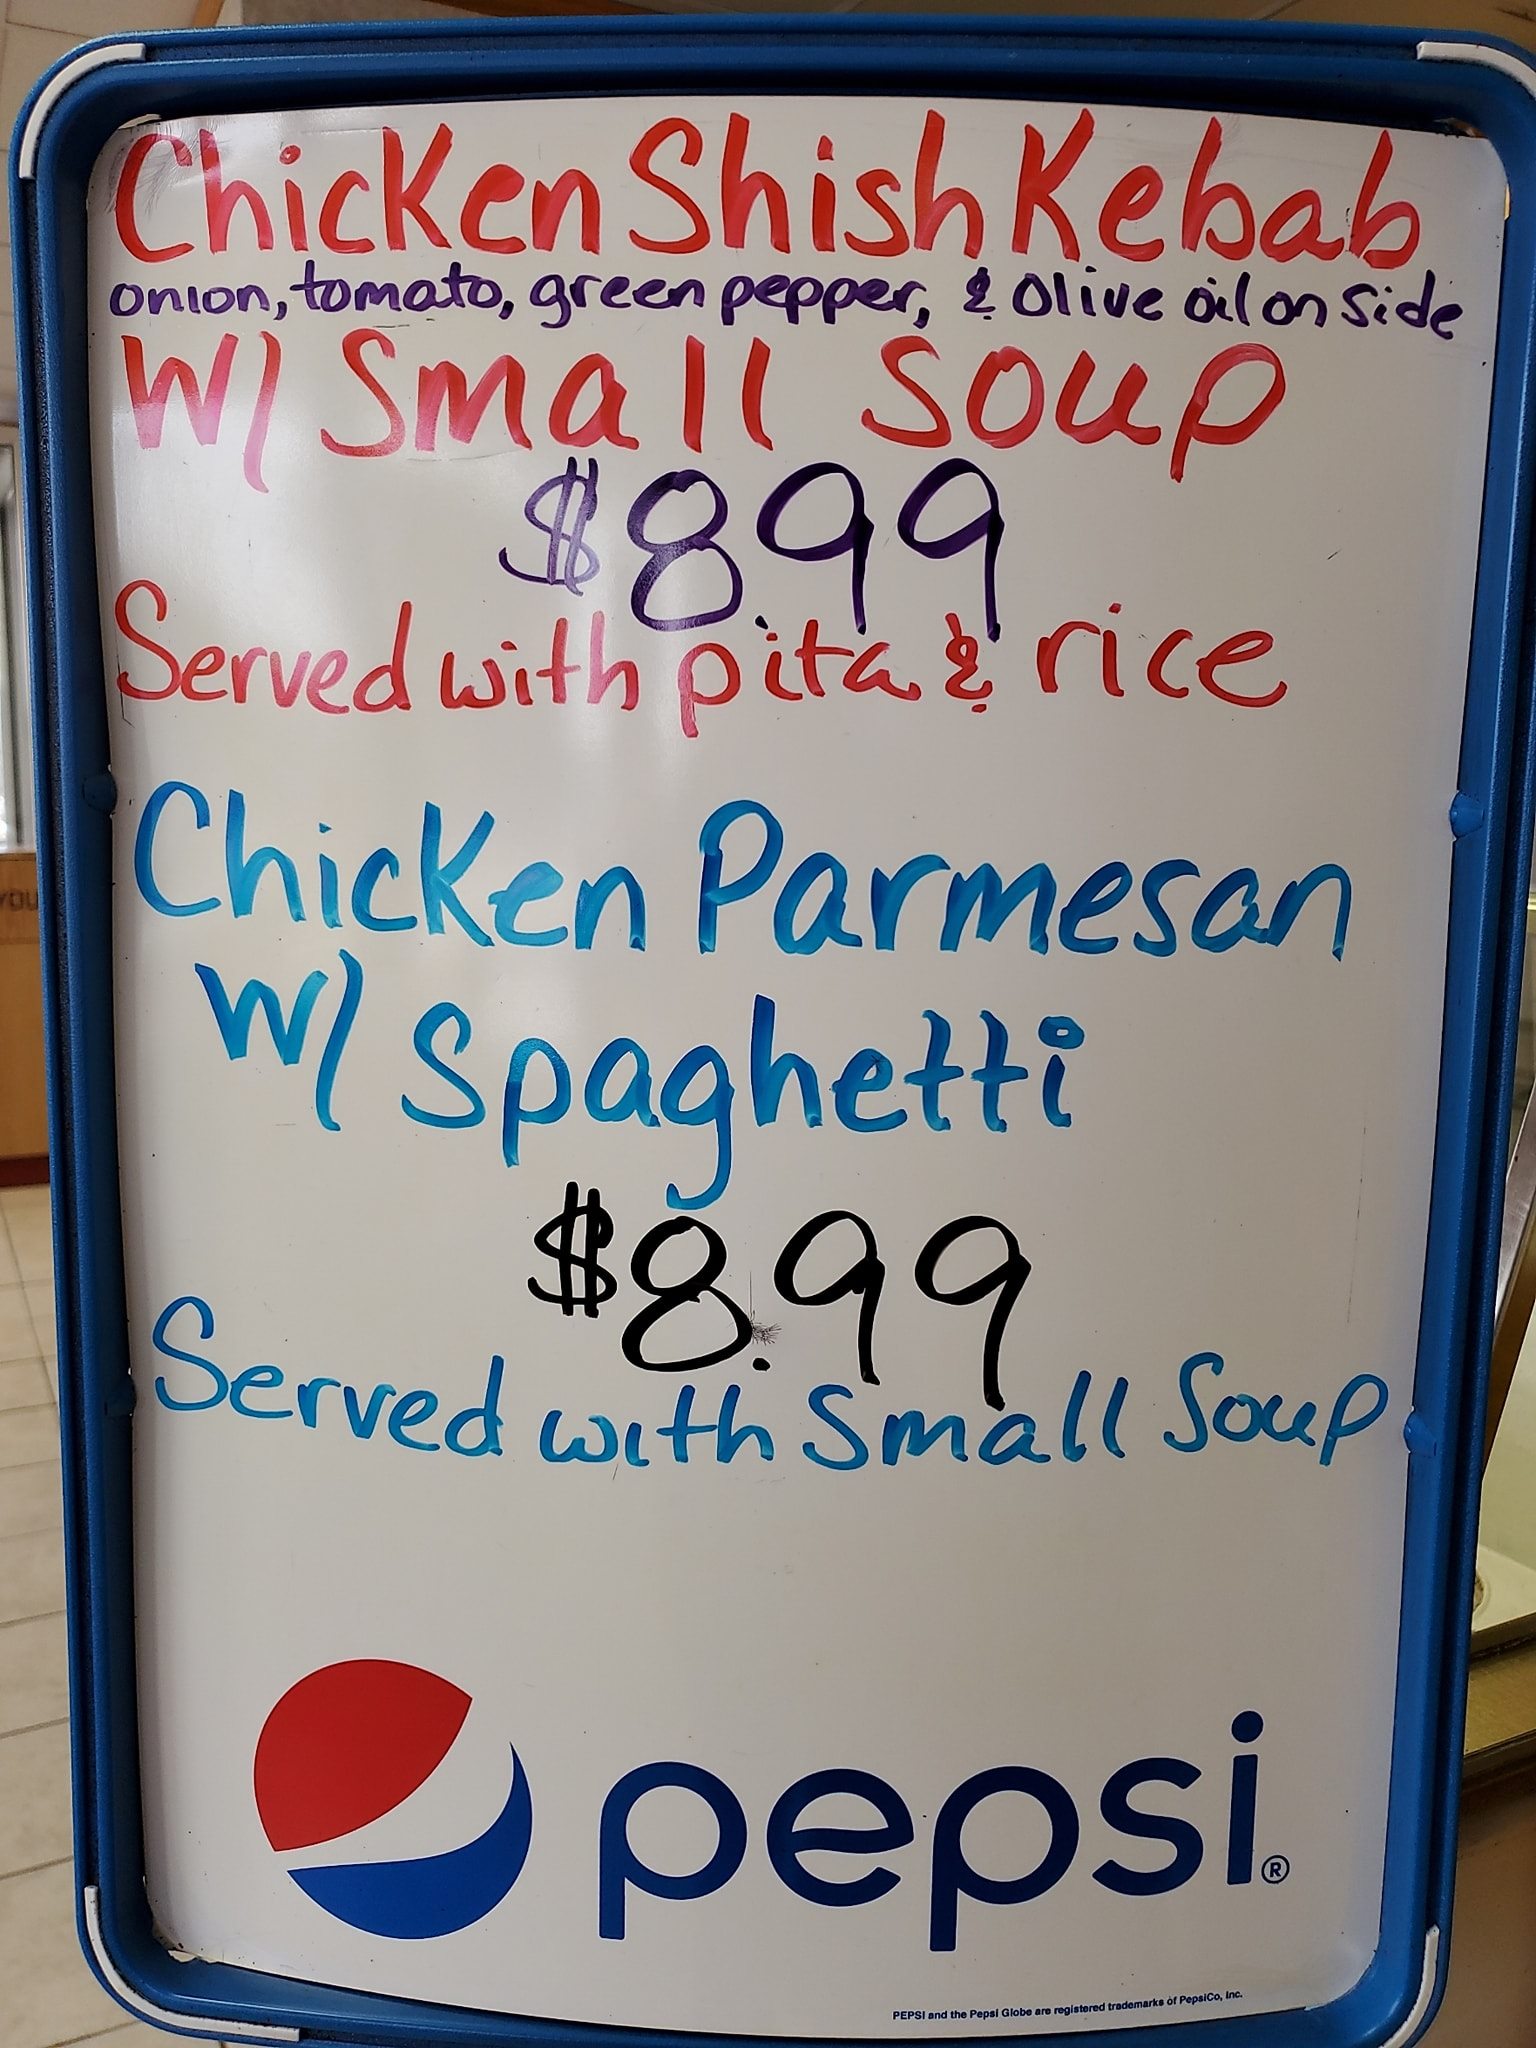 Chicken Shish Kebab
onion, tomato, green pepper, & Olive oil on side
W/ Small Soup
$8.99
Served with pita & rice
Chicken Parmesan
W/ Spaghetti
$8.99
Served with Small Soup
pepsi®
PEPSI and the Pepsi Globe are registered trademarks of PepsiCo, Inc.
YOU